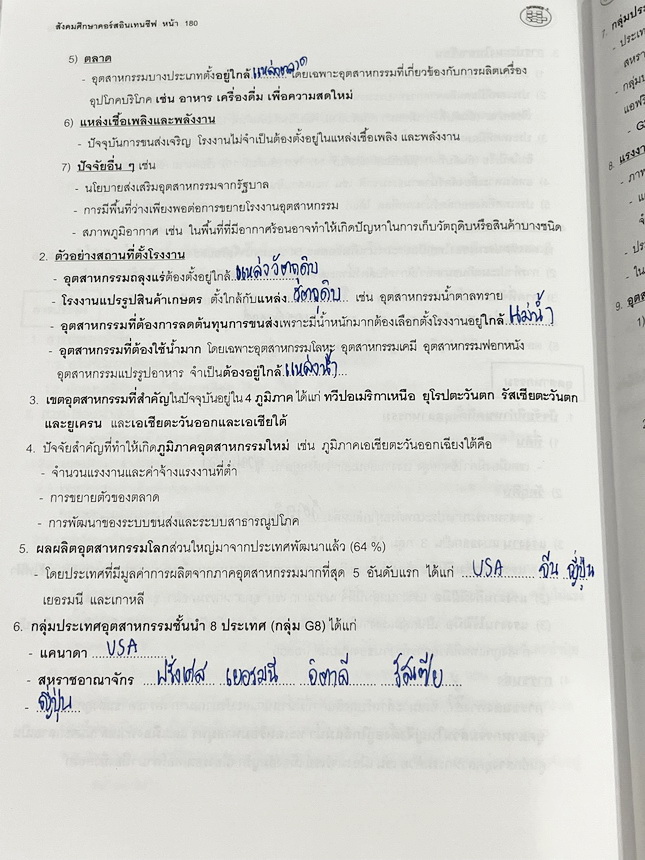 สังคมศึกษาคอร์สอินเทนซีฟ หน้า 180
5) ตลาด
- อุตสาหกรรมบางประเภทตั้งอยู่ใกล้ แหล่งตลาด โดยเฉพาะอุตสาหกรรมที่เกี่ยวข้องกับการผลิตเครื่อง
อุปโภคบริโภค เช่น อาหาร เครื่องดื่ม เพื่อความสดใหม่
6) แหล่งเชื้อเพลิงและพลังงาน
- ปัจจุบันการขนส่งเจริญ โรงงานไม่จำเป็นต้องตั้งอยู่ในแหล่งเชื้อเพลิง และพลังงาน
7) ปัจจัยอื่น ๆ เช่น
- นโยบายส่งเสริมอุตสาหกรรมจากรัฐบาล
- การมีพื้นที่ว่างเพียงพอต่อการขยายโรงงานอุตสาหกรรม
- สภาพภูมิอากาศ เช่น ในพื้นที่ที่มีอากาศร้อนอาจทำให้เกิดปัญหาในการเก็บวัตถุดิบหรือสินค้าบางชนิด
2. ตัวอย่างสถานที่ตั้งโรงงาน
- อุตสาหกรรมถลุงแร่ต้องตั้งอยู่ใกล้ แหล่งวัตถุดิบ
- โรงงานแปรรูปสินค้าเกษตร ตั้งใกล้กับแหล่ง วัตถุดิบ เช่น อุตสาหกรรมน้ำตาลทราย
- อุตสาหกรรมที่ต้องการลดต้นทุนการขนส่งเพราะมีน้ำหนักมากต้องเลือกตั้งโรงงานอยู่ใกล้ แม่น้ำ
- อุตสาหกรรมที่ต้องใช้น้ำมาก โดยเฉพาะอุตสาหกรรมโลหะ อุตสาหกรรมเคมี อุตสาหกรรมฟอกหนัง
อุตสาหกรรมแปรรูปอาหาร จำเป็นต้องอยู่ใกล้ แหล่งน้ำ
3. เขตอุตสาหกรรมที่สำคัญในปัจจุบันอยู่ใน 4 ภูมิภาค ได้แก่ ทวีปอเมริกาเหนือ ยุโรปตะวันตก รัสเซียตะวันตก
และยูเครน และเอเชียตะวันออกและเอเชียใต้
4. ปัจจัยสำคัญที่ทำให้เกิดภูมิภาคอุตสาหกรรมใหม่ เช่น ภูมิภาคเอเชียตะวันออกเฉียงใต้คือ
- จำนวนแรงงานและค่าจ้างแรงงานที่ต่ำ
- การขยายตัวของตลาด
- การพัฒนาของระบบขนส่งและระบบสาธารณูปโภค
5. ผลผลิตอุตสาหกรรมโลกส่วนใหญ่มาจากประเทศพัฒนาแล้ว (64 %)
- โดยประเทศที่มีมูลค่าการผลิตจากภาคอุตสาหกรรมมากที่สุด 5 อันดับแรก ได้แก่ USA จีน ญี่ปุ่น
เยอรมนี และเกาหลี
6. กลุ่มประเทศอุตสาหกรรมชั้นนำ 8 ประเทศ (กลุ่ม G8) ได้แก่
- แคนาดา USA
- สหราชอาณาจักร ฝรั่งเศส เยอรมนี อิตาลี รัสเซีย
- ญี่ปุ่น